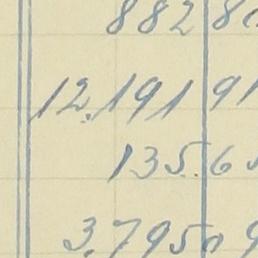 882 8
12,191 91
135.6
3,795 9